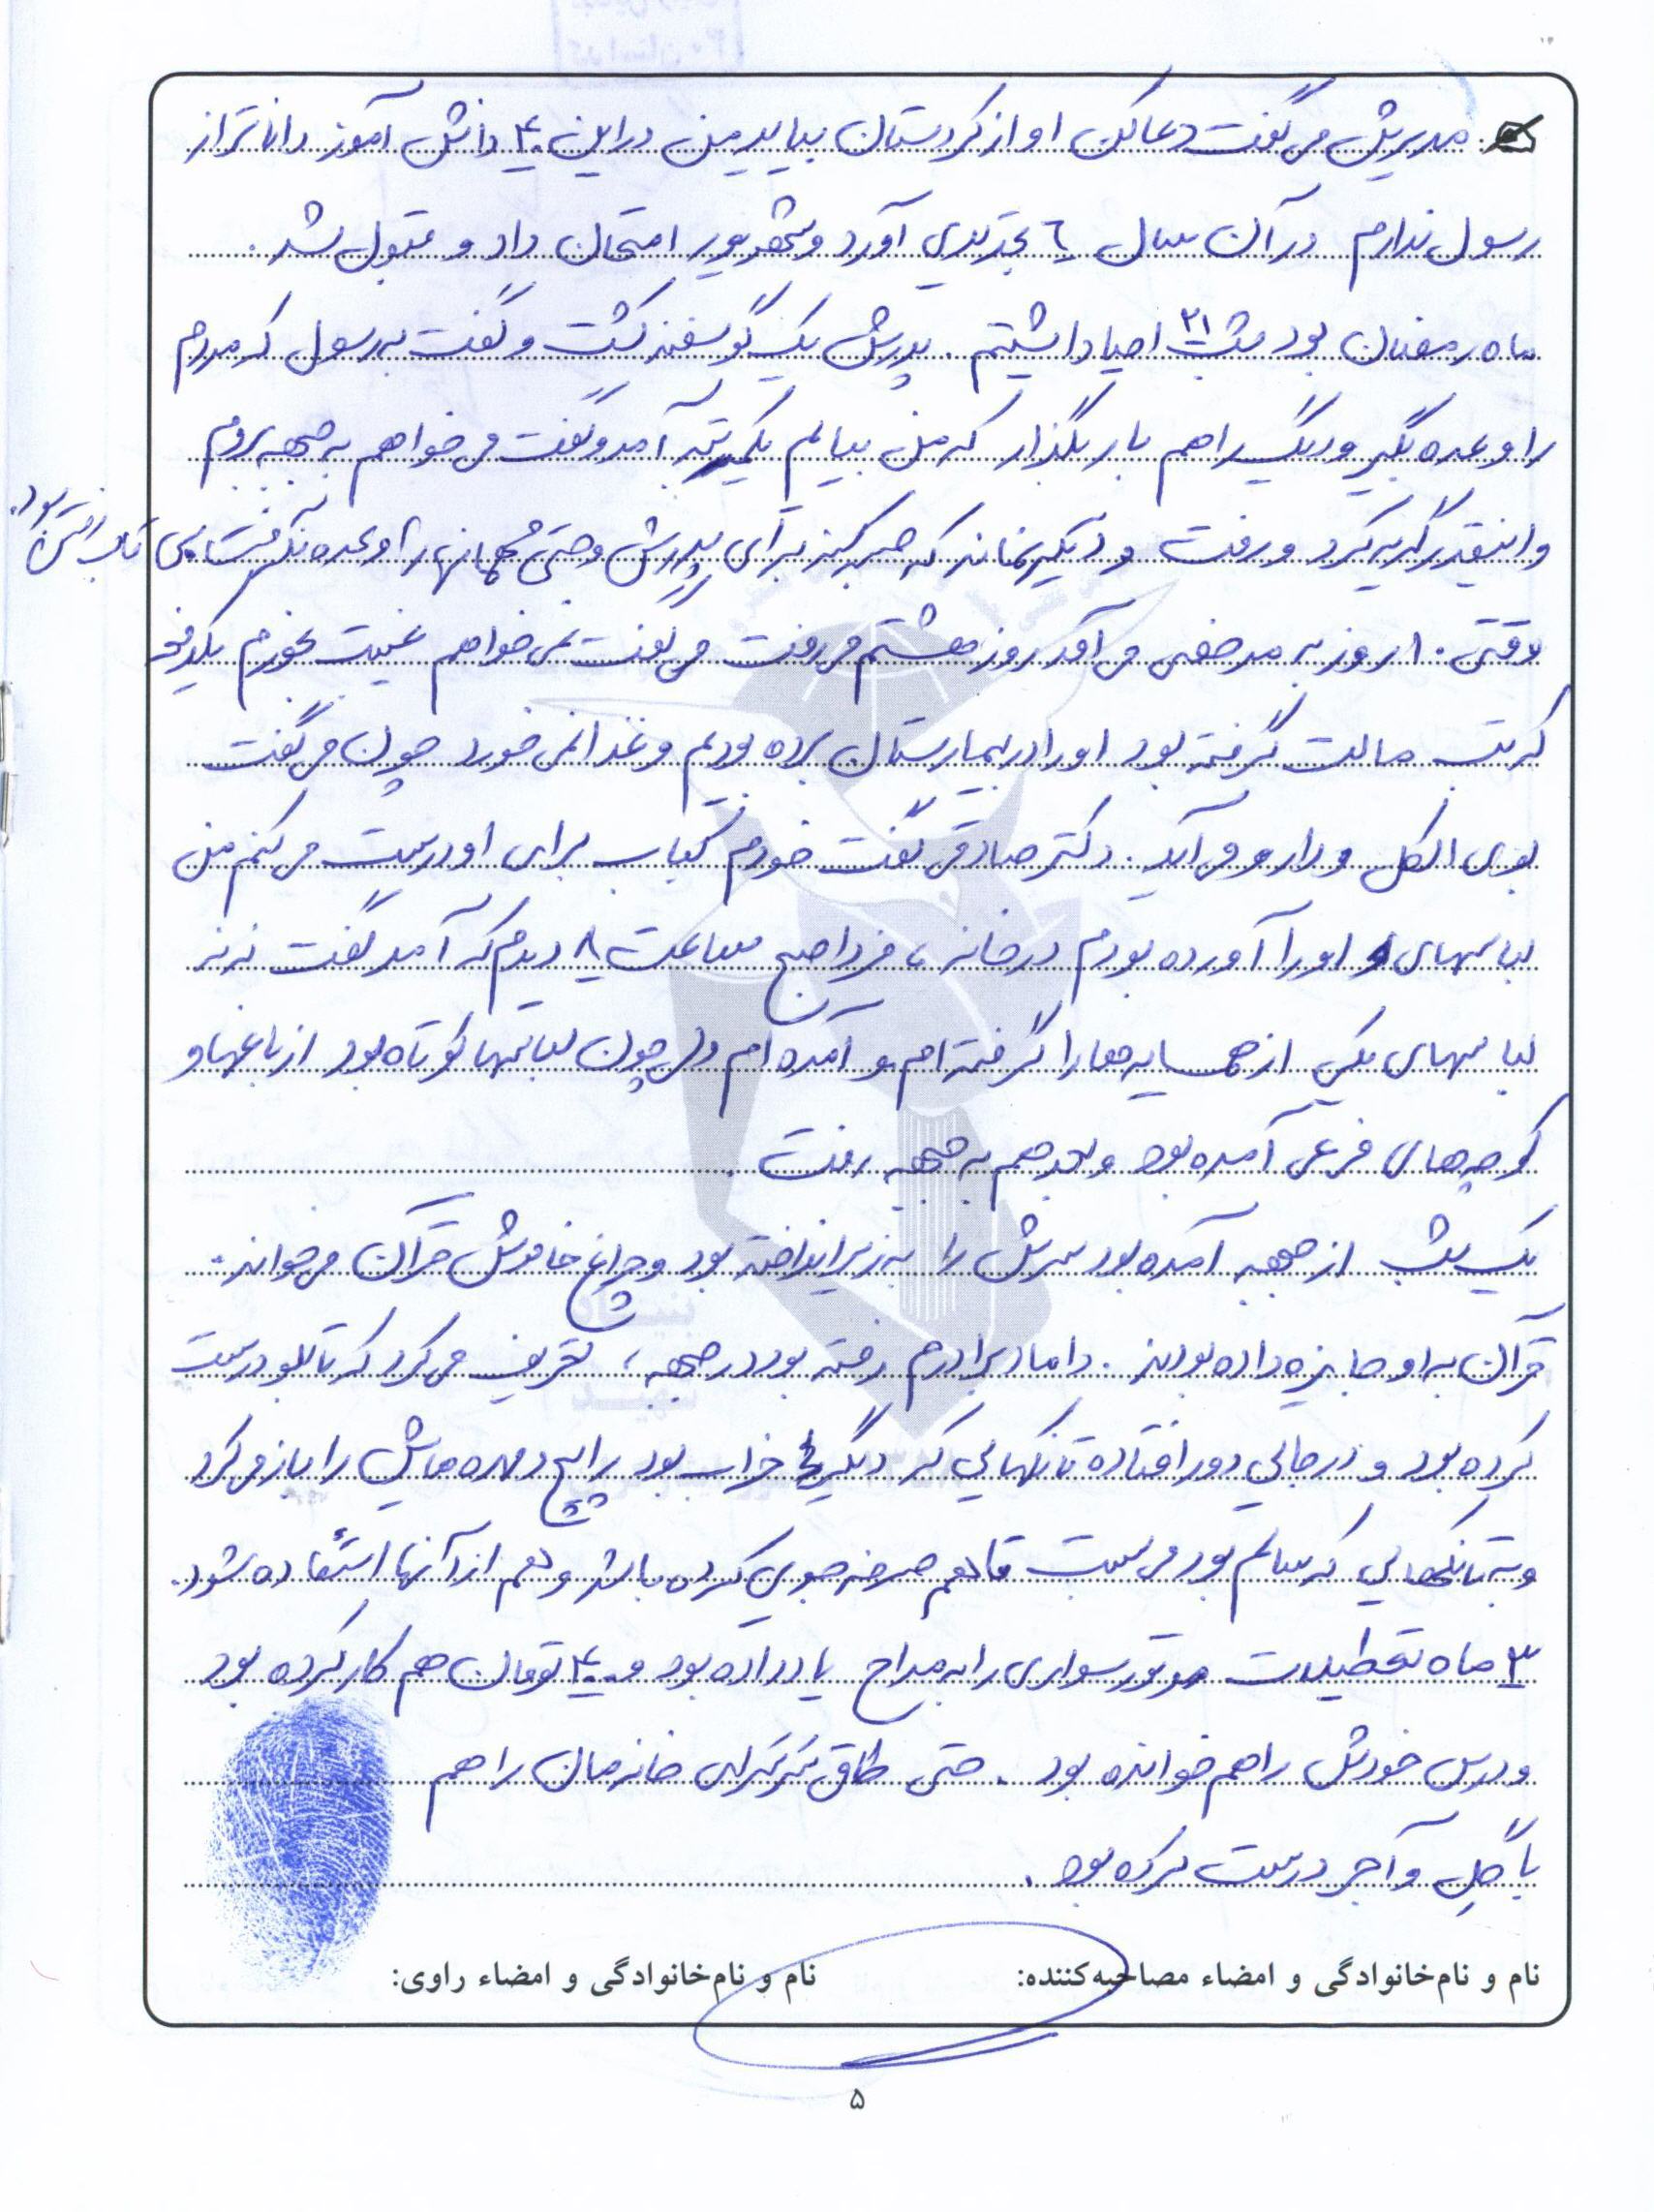 مدیرش می گفت دعا کن او از کردستان بیاید من در این ۴۰ دانش آموز داناتر از
رسول ندارم در آن سال ۶ تجدیدی آورد و شهریور امتحان داد و قبول شد.
ماه رمضان بود شب ۲۱ احیا داشتیم. پدرش یک گوسفند کشت و گفت به رسول که مردم
را وعده بگیر و دیگ را هم بار بگذار که من بیایم یکمرتبه آمد و گفت می خواهم به جبهه بروم
و اینقدر گریه کرد و رفت و دیگر نماند که صبر کند برای پدرش و حتی مهمانها را وعده نگرفت
وقتی ۱۰ روز به مرخصی می آمد روز هشتم می رفت می گفت نمی خواهم غیبت بخورم یکدفعه
که تب مالت گرفته بود او را در بیمارستان برده بودیم و غذا نمی خورد چون می گفت
بوی الکل و دارو می آید. دکتر صادقی گفت خودم کباب برای او درست می کنم من
لباسهای او را آورده بودم در خانه، فردا صبح ساعت ۸ دیدم که آمد گفت ننه
لباسهای یکی از همسایه ها را گرفته ام و آمده ام ولی چون لباسها کوتاه بود از باغها و
کوچه های فرعی آمده بود و بعد هم به جبهه رفت.
یک شب از جبهه آمده بود سرش را به زیر انداخته بود و چراغ خاموش قرآن می خواند.
قرآن به او جایزه داده بودند. داماد برادرم رفته بود در جبهه، تعریف می کرد که تابلو درست
کرده بود و در جایی دور افتاده تانکهایی که دیگر خراب بود پیچ و مهره هایش را باز می کرد
و به تانکهایی که سالم بود می بست تا هم صرفه جویی کرده باشد و هم از آنها استفاده شود.
۳ ماه تعطیلات موتورسواری را به مداح یاد داده بود و ۴۰۰ تومان هم کار کرده بود
و درس خودش را هم خوانده بود. حتی طاق خانه مان را هم
با گِل و آجر درست کرده بود.
نام و نام‌خانوادگی و امضاء مصاحبه‌کننده:
نام و نام‌خانوادگی و امضاء راوی:
۵